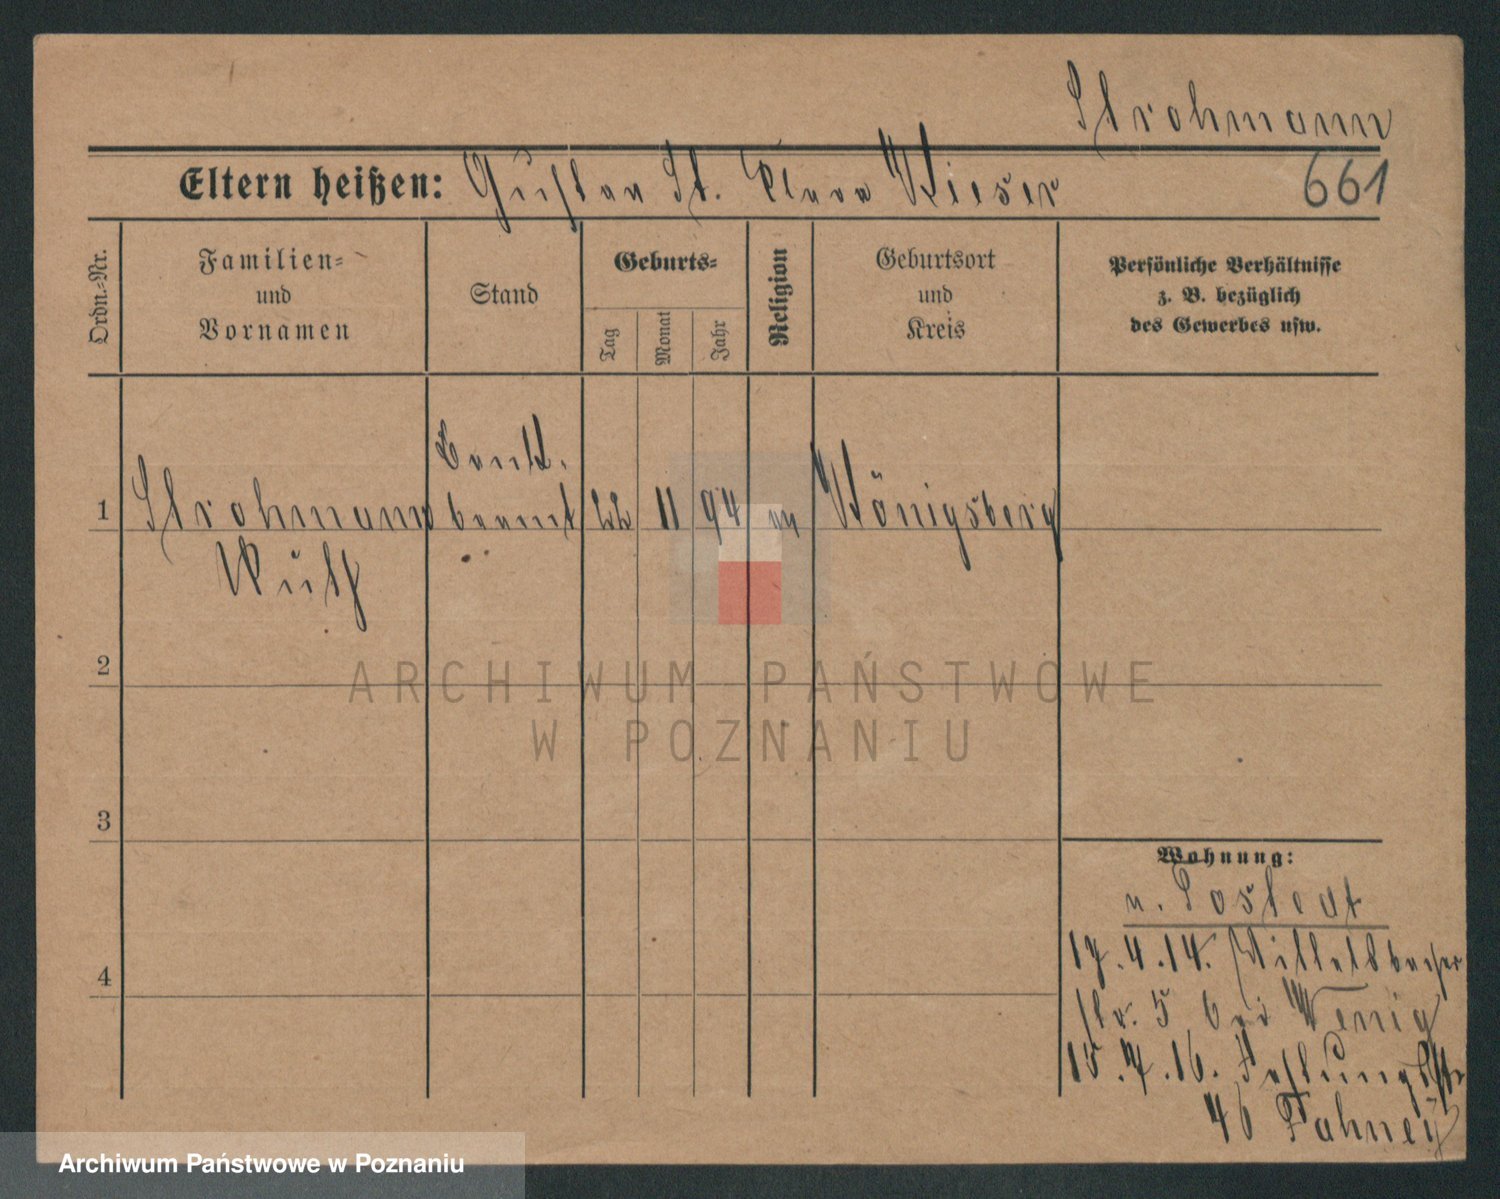 Strohmann
Eltern heißen: Gustav St. Clara Kieser
661
Ordn.-Nr.
Familien-
und
Vornamen
Stand
Geburts-
Tag
Monat
Jahr
Religion
Geburtsort
und
Kreis
Persönliche Verhältnisse
z. B. bezüglich
des Gewerbes usw.
Bank.
1 Strohmann beamt 22 11 94 Königsberg
2
3
4
Wohnung:
17.4.14.
str. 5 bei Wenig
15.7.16.
46
ARCHIWUM PAŃSTWOWE
W POZNANIU
Archiwum Państwowe w Poznaniu